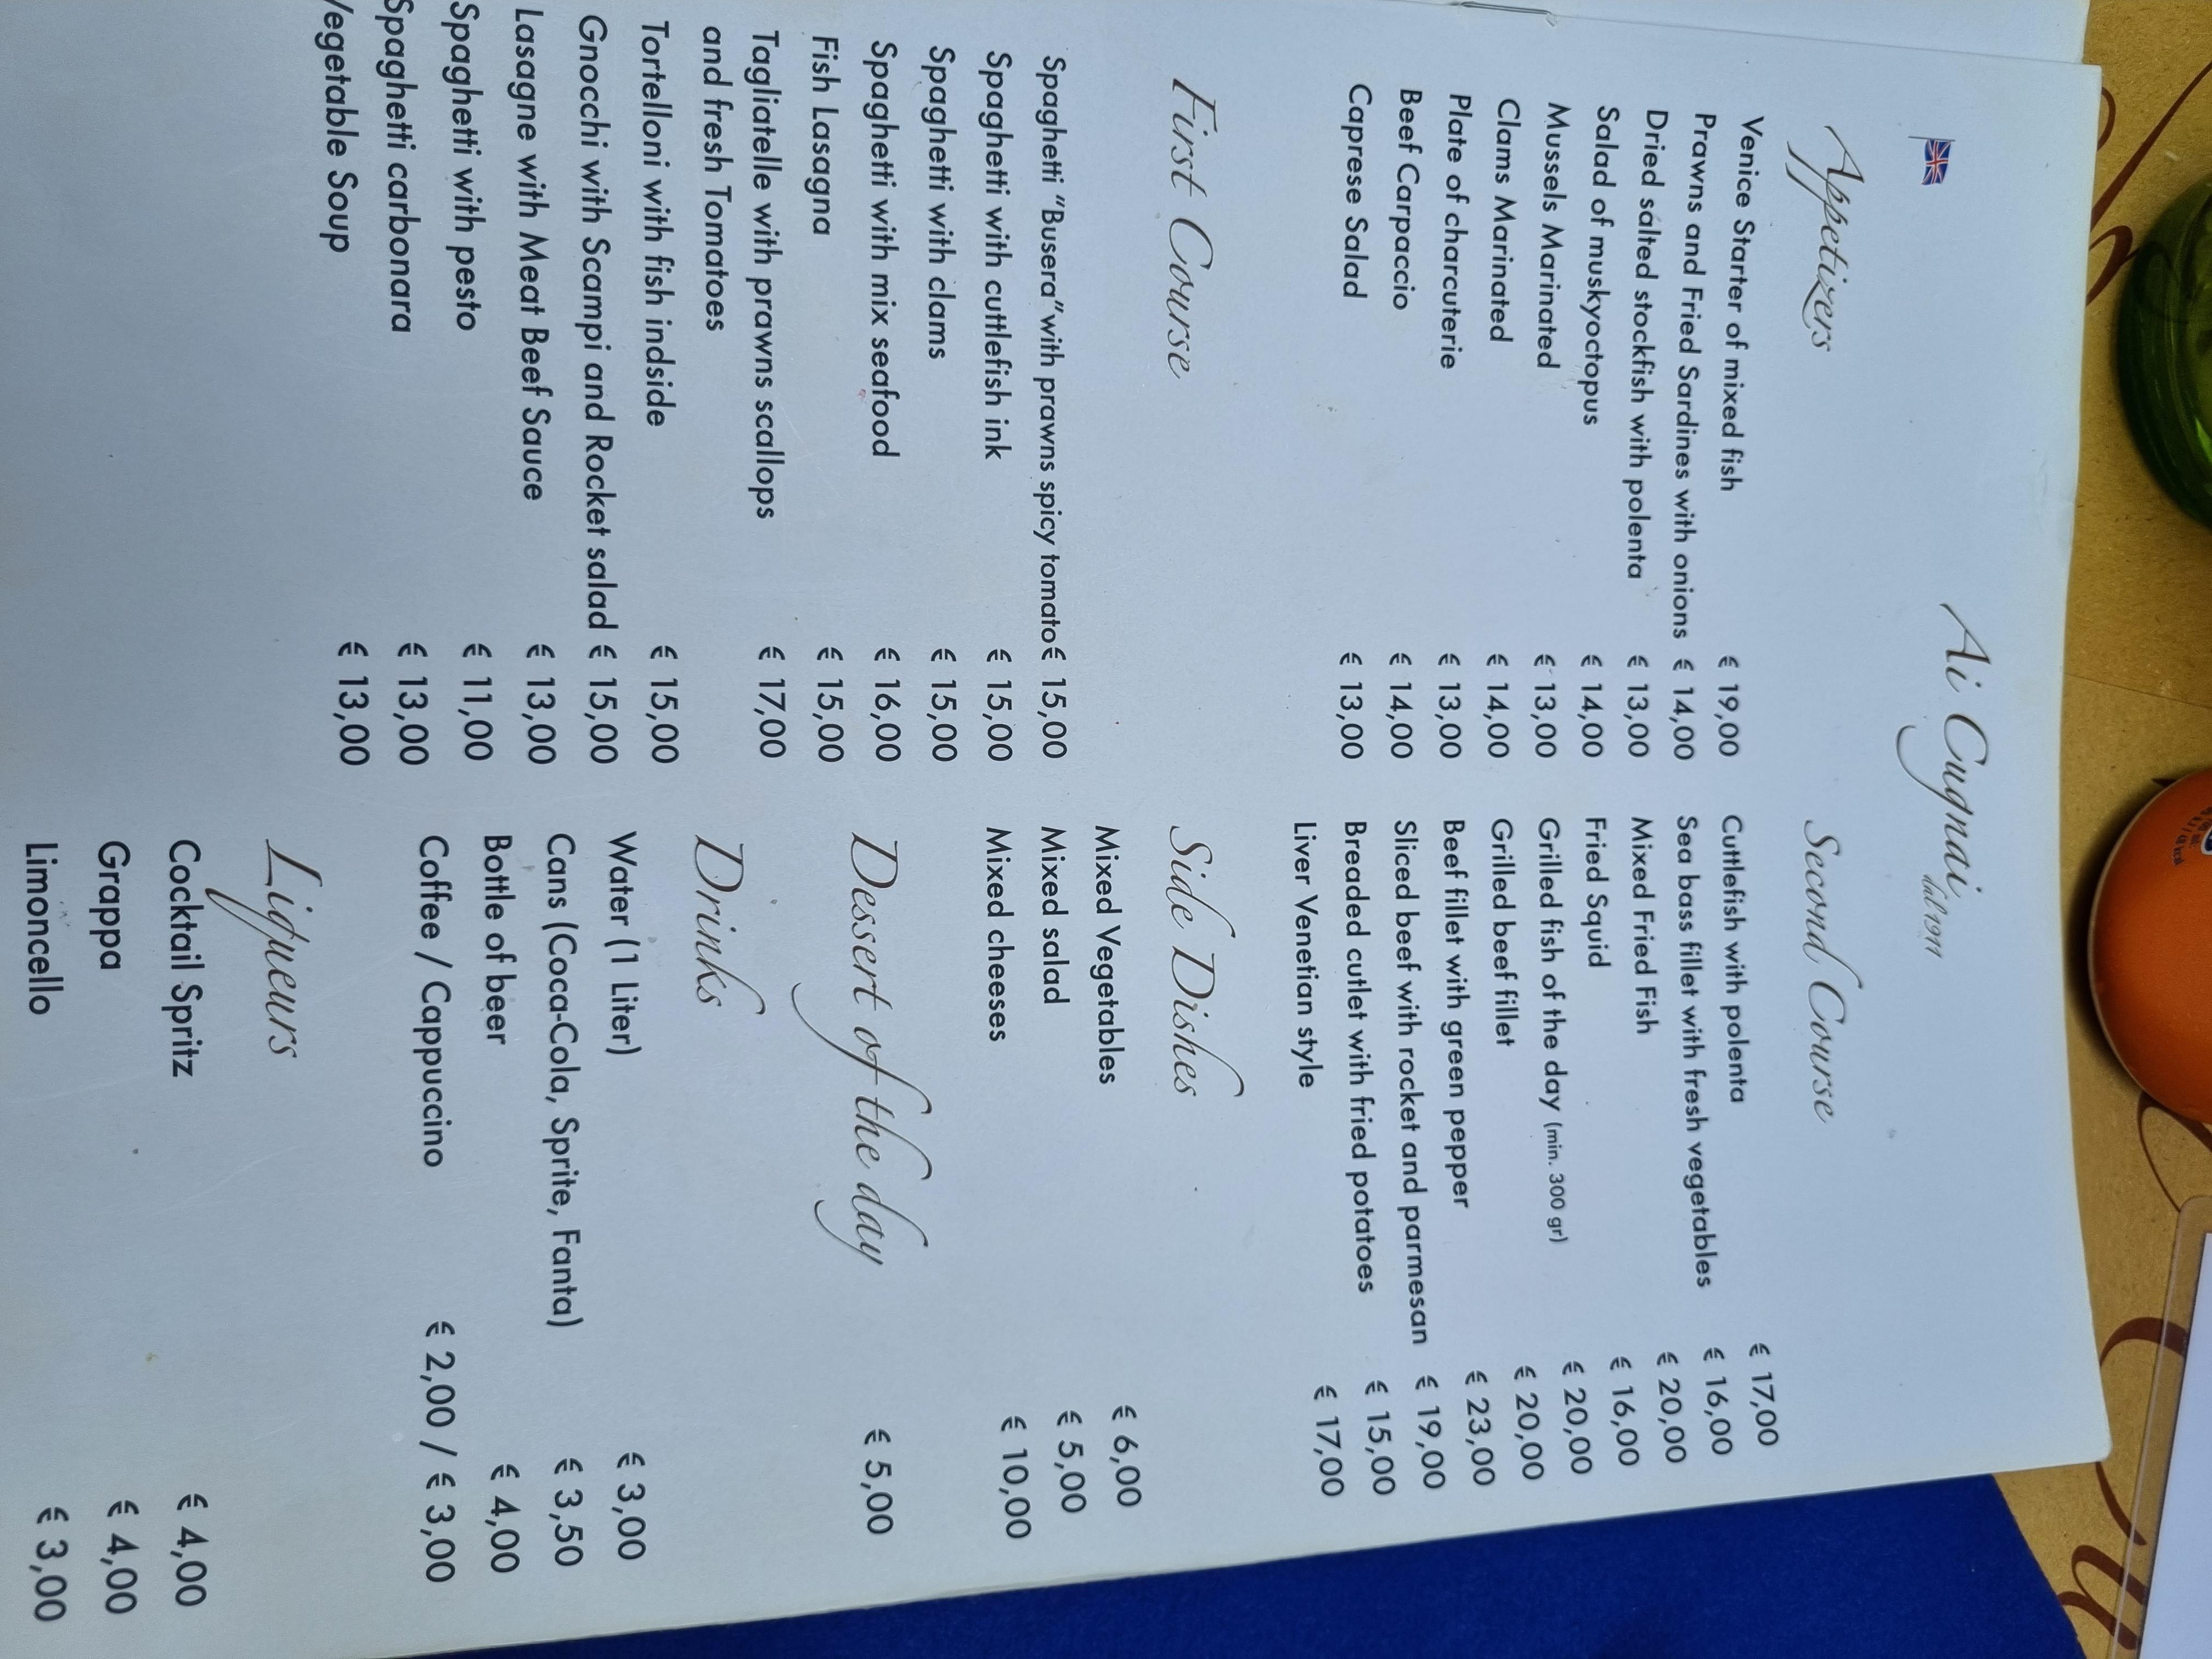 Ai Cugnai
dal 1911
Appetizers
Venice Starter of mixed fish € 19,00
Prawns and Fried Sardines with onions € 14,00
Dried salted stockfish with polenta € 13,00
Salad of muskyoctopus € 14,00
Mussels Marinated € 13,00
Clams Marinated € 14,00
Plate of charcuterie € 13,00
Beef Carpaccio € 14,00
Caprese Salad € 13,00
First Course
Spaghetti "Busera"with prawns spicy tomato€ 15,00
Spaghetti with cuttlefish ink € 15,00
Spaghetti with clams € 15,00
Spaghetti with mix seafood € 16,00
Fish Lasagna € 15,00
Tagliatelle with prawns scallops € 17,00
and fresh Tomatoes
Tortelloni with fish indside € 15,00
Gnocchi with Scampi and Rocket salad € 15,00
Lasagne with Meat Beef Sauce € 13,00
Spaghetti with pesto € 11,00
Spaghetti carbonara € 13,00
Vegetable Soup € 13,00
Second Course
Cuttlefish with polenta € 17,00
Sea bass fillet with fresh vegetables € 16,00
Mixed Fried Fish € 20,00
Fried Squid € 16,00
Grilled fish of the day (min. 300 gr) € 20,00
Grilled beef fillet € 20,00
Beef fillet with green pepper € 23,00
Sliced beef with rocket and parmesan € 19,00
Breaded cutlet with fried potatoes € 15,00
Liver Venetian style € 17,00
Side Dishes
Mixed Vegetables € 6,00
Mixed salad € 5,00
Mixed cheeses € 10,00
Dessert of the day € 5,00
Drinks
Water (1 Liter) € 3,00
Cans (Coca-Cola, Sprite, Fanta) € 3,50
Bottle of beer € 4,00
Coffee / Cappuccino € 2,00 / € 3,00
Liqueurs
Cocktail Spritz € 4,00
Grappa € 4,00
Limoncello € 3,00